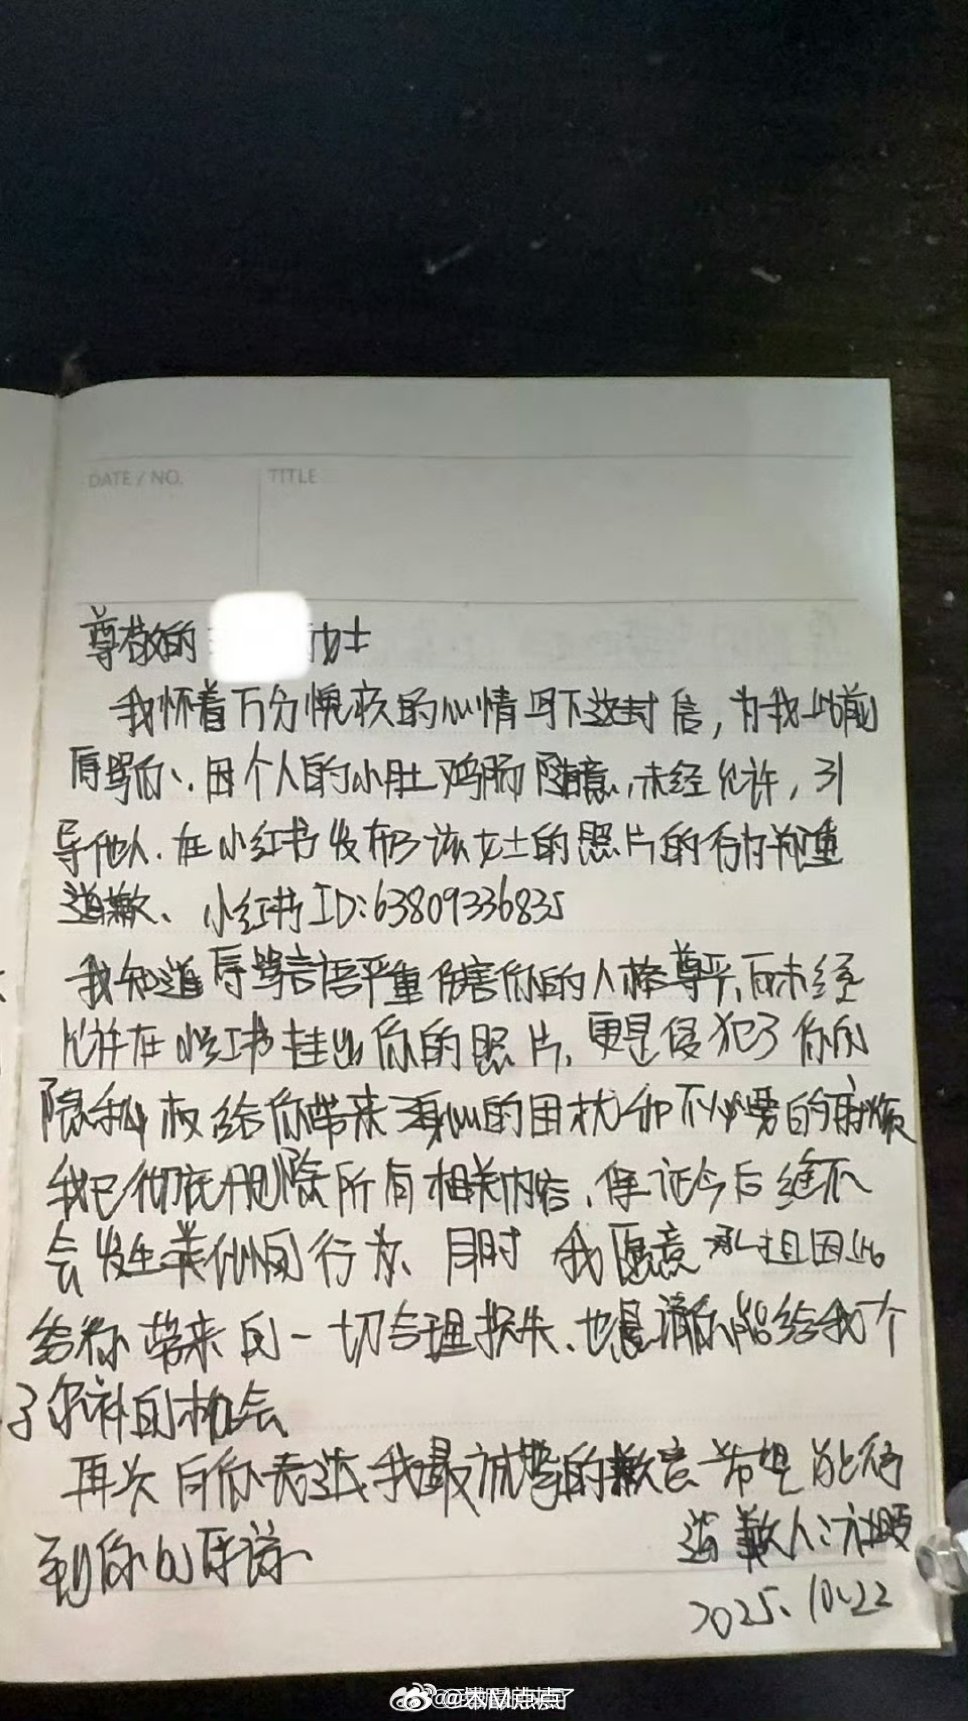 DATE / NO.
TITLE
尊敬的 女士
我怀着万分愧疚的心情写下这封信，为我此前
辱骂你、因个人的小肚鸡肠 随意、未经允许，引
导他人、在小红书发布了该女士的照片的行为郑重
道歉、小红书ID:63809336835
我知道辱骂言语严重伤害你的人格尊严、而未经
允许在小红书挂出你的照片、更是侵犯了你的
隐私权给你带来身心的困扰和不必要的麻烦
我已彻底删除所有相关内容、保证今后绝不
会发生类似行为、同时 我愿意承担因此
给你带来的一切合理损失、也恳请你能给我个
弥补的机会
再次向你表达我最诚挚的歉意 希望能得
到你的原谅、
道歉人：
2025.10.22